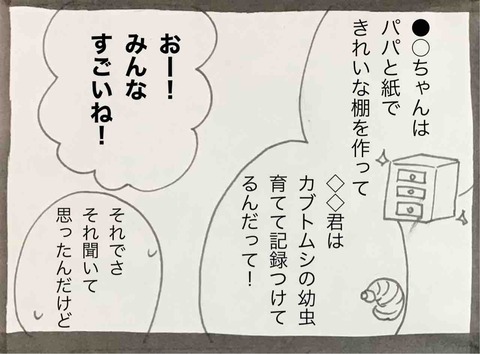 ●○ちゃんは
パパと紙で
きれいな棚を作って
◇◇君は
カブトムシの幼虫
育てて記録つけて
るんだって！
おー！
みんな
すごいね！
それでさ
それ聞いて
思ったんだけど